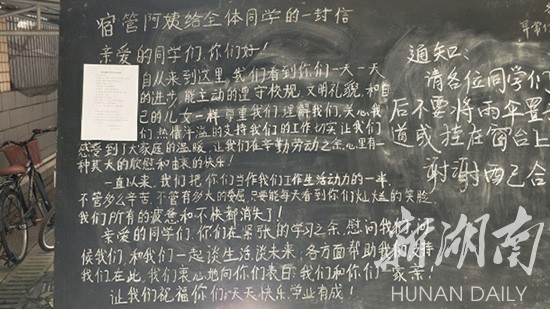 宿管阿姨给全体同学的一封信
亲爱的同学们,你们好!
自从来到这里,我们看到你们一天一天
的进步,能主动的遵守校规,文明礼貌,和自
己的儿女一样尊重我们,理解我们,关心我
们,热情洋溢的支持我们的工作,切实让我们
感受到了大家庭的温暖,让我们在辛勤劳动之余,心里有一
种莫大的欣慰和由来的快乐!
一直以来,我们把你们当作我们工作生活动力的一半,
不管多么辛苦,不管有多大的委屈,只要能每天看到你们灿烂的笑脸,
我们所有的疲惫和不快都消失了!
亲爱的同学们,你们在紧张的学习之余,慰问我们,问
候我们,和我们一起谈生活谈未来,各方面帮助我们
我们,在此,我们衷心地向你们表白:我们和你们一家亲!
让我们祝福你们,天天快乐,学业有成!
通知:
请各位同学们
后不要将雨伞置
道或挂在窗台上
谢谢配合
新湖南
HUNAN DAILY